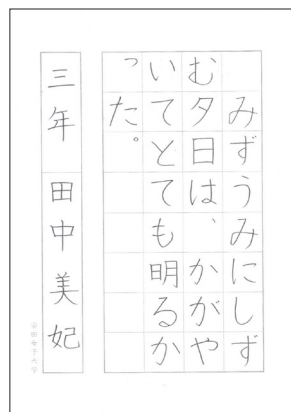 みずうみにしず
む夕日は、かがや
いてとても明るか
った。
三年 田中美妃
安田女子大学